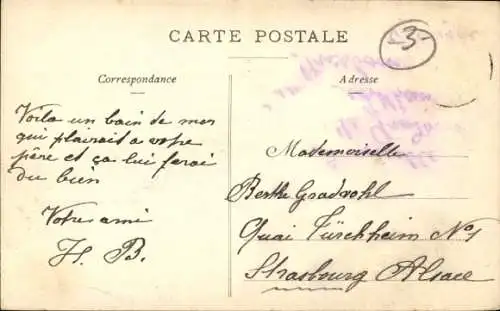 CARTE POSTALE
3
Correspondance
Adresse
Voila un bain de mer
qui plairait a votre
père et ça lui ferai
du bien
Votre ami
H. B.
Mademoiselle
Berthe Gradvohl
Quai Türckheim No 1
Strasbourg Alsace